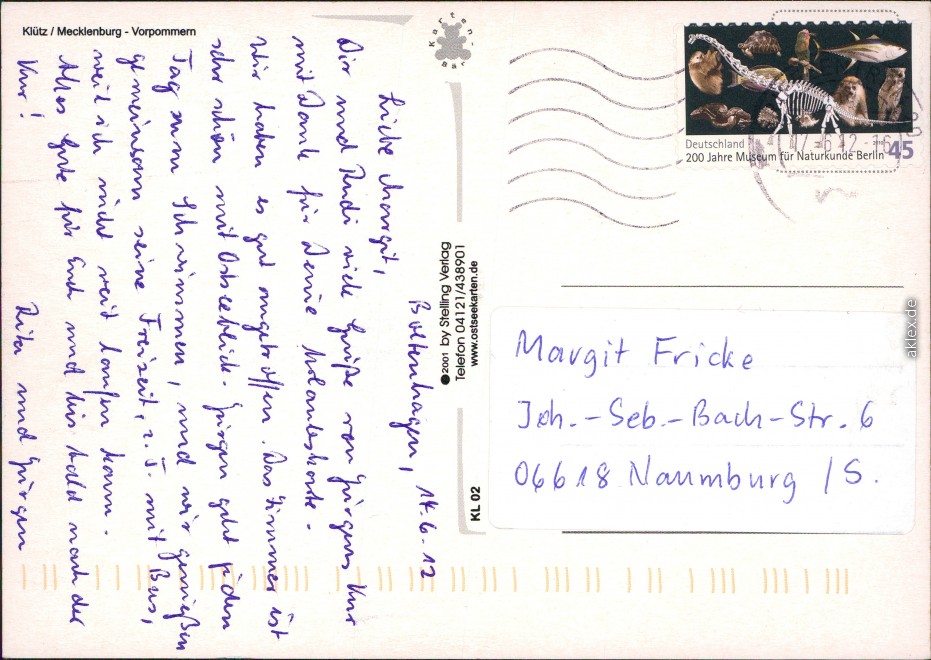 Klütz / Mecklenburg - Vorpommern
Karten-Bär
Boltenhagen, 14.6.12
Liebe Margit,
Dir und Rudi viele Grüße von Jürgens Kur
mit Dank für Deine Urlaubskarte.
Wir haben es gut angetroffen. Das Zimmer ist
sehr schön mit Ostseeblick. Jürgen geht jeden
Tag zum Schwimmen, und wir genießen
gemeinsam seine Freizeit, z. T. mit Bus,
weil ich nicht weit laufen kann.
Alles Gute für Euch und bis bald nach der
Kur!
Rita und Jürgen
©2001 by Stelling Verlag
Telefon 04121/438901
www.ostseekarten.de
KL 02
Deutschland
200 Jahre Museum für Naturkunde Berlin 45
Margit Fricke
Joh.-Seb.-Bach-Str. 6
06618 Naumburg /S.
aklex.de